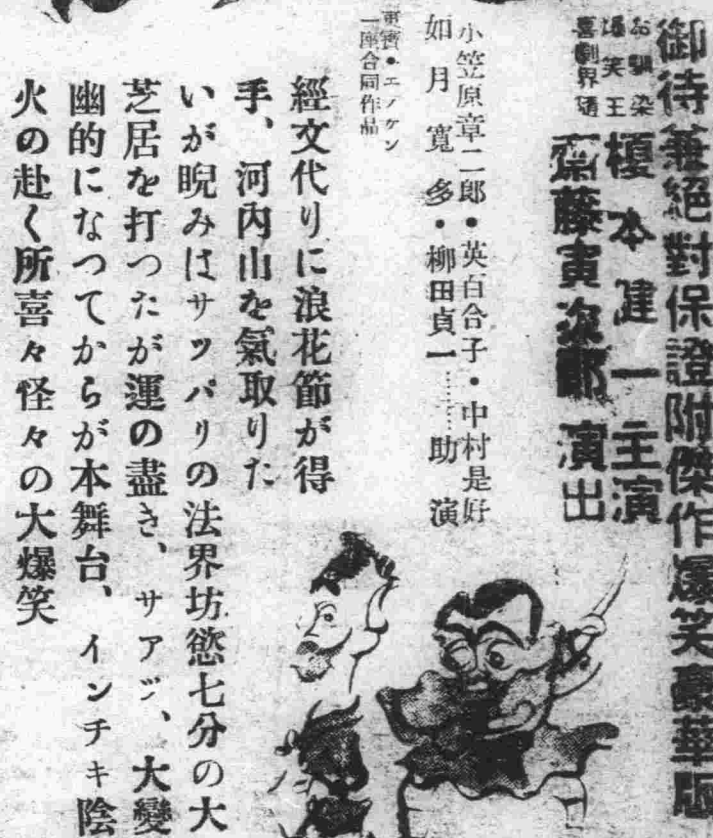 御待兼絶對保證附傑作爆笑豪華版
お馴染
爆笑王
榎本健一主演
喜劇界随一
齋藤寅次郎演出
小笠原章二郎・英百合子・中村是好
如月寛多・柳田貞一……助演
東寶・エノケン
一座合同作品
經文代りに浪花節が得
手、河内山を氣取りた
いが睨みはサッパリの法界坊慾七分の大
芝居を打つたが運の盡き、サアツ、大變
幽的になつてからが本舞台、インチキ陰
火の赴く所喜々怪々の大爆笑